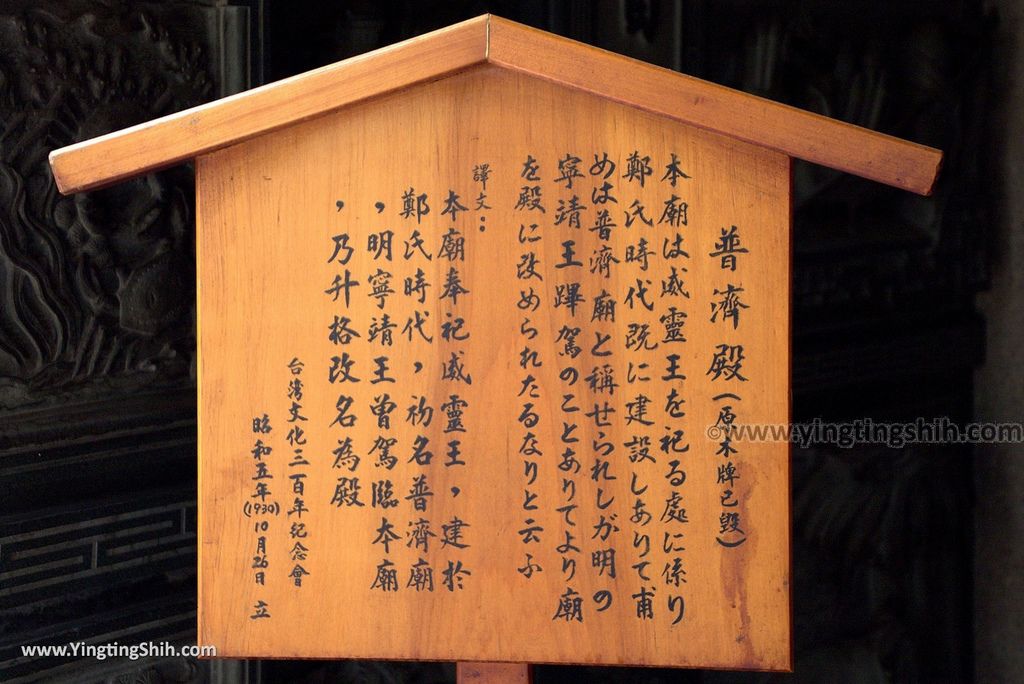 普濟殿(原木牌已毀)
本廟は威靈王を祀る處に係り
鄭氏時代既に建設しありて甫
めは普濟廟と稱せられしが明の
寧靖王蹕駕のことありてより廟
を殿に改められたるなりと云ふ
譯文：
本廟奉祀威靈王，建於
鄭氏時代，初名普濟廟
，明寧靖王曾駕臨本廟
，乃升格改名為殿
台灣文化三百年紀念會
昭和五年(1930)10月26日 立
©www.yingtingshih.com
www.YingtingShih.com